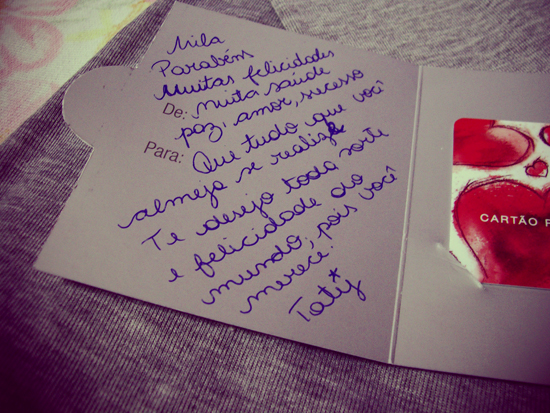 Mila
Parabém
Muitas felicidades
De: muita saúde
paz, amor, sucesso
Para: Que tudo que você
almeja se realize
Te desejo toda sorte
e felicidade do
mundo, pois você
merece!
Taty*
CARTÃO